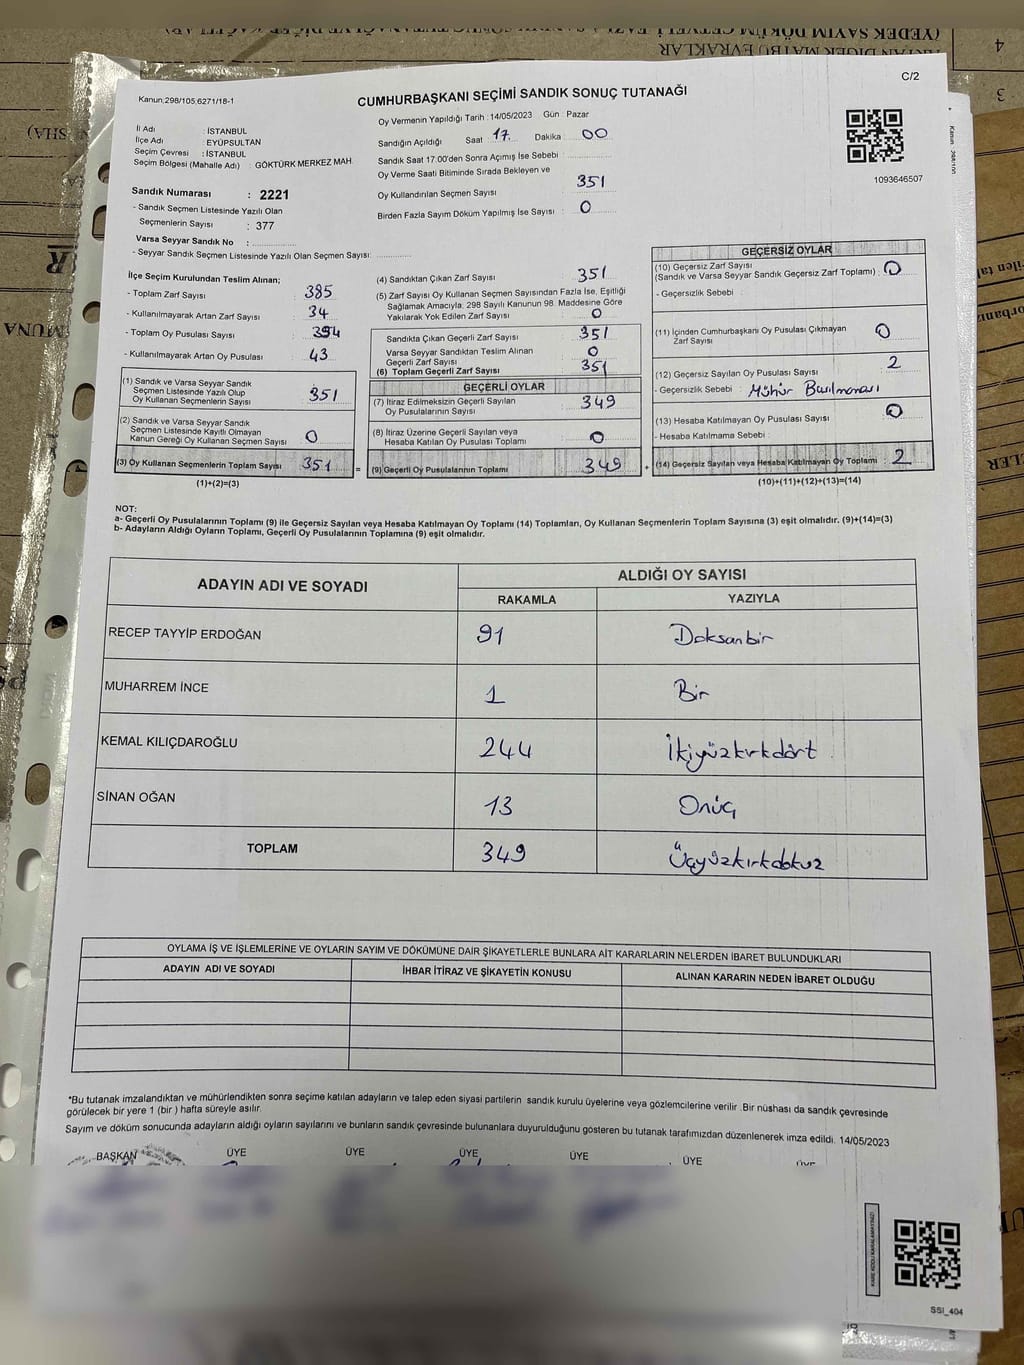 (YEDEK SAYIM DÖKÜM CETVELİ
DİĞER MATBU EVRAKLAR
4
3
C/2
Kanun:298/105,6271/18-1
CUMHURBAŞKANI SEÇİMİ SANDIK SONUÇ TUTANAĞI
Oy Vermenin Yapıldığı Tarih :14/05/2023 Gün : Pazar
İl Adı : İSTANBUL
İlçe Adı : EYÜPSULTAN
Seçim Çevresi : İSTANBUL
Seçim Bölgesi (Mahalle Adı) : GÖKTÜRK MERKEZ MAH.
Sandığın Açıldığı Saat : 17 Dakika : 00
Sandık Saat 17.00'den Sonra Açımış İse Sebebi :
Oy Verme Saati Bitiminde Sırada Bekleyen ve
Oy Kullandırılan Seçmen Sayısı : 351
Birden Fazla Sayım Döküm Yapılmış İse Sayısı : 0
1093646507
Sandık Numarası : 2221
- Sandık Seçmen Listesinde Yazılı Olan
Seçmenlerin Sayısı : 377
Varsa Seyyar Sandık No :
- Seyyar Sandık Seçmen Listesinde Yazılı Olan Seçmen Sayısı:
İlçe Seçim Kurulundan Teslim Alınan;
- Toplam Zarf Sayısı : 385
- Kullanılmayarak Artan Zarf Sayısı : 34
- Toplam Oy Pusulası Sayısı : 394
- Kullanılmayarak Artan Oy Pusulası : 43
(1) Sandık ve Varsa Seyyar Sandık
Seçmen Listesinde Yazılı Olup
Oy Kullanan Seçmenlerin Sayısı : 351
(2) Sandık ve Varsa Seyyar Sandık
Seçmen Listesinde Kayıtlı Olmayan
Kanun Gereği Oy Kullanan Seçmen Sayısı : 0
(3) Oy Kullanan Seçmenlerin Toplam Sayısı : 351 =
(1)+(2)=(3)
(4) Sandıktan Çıkan Zarf Sayısı : 351
(5) Zarf Sayısı Oy Kullanan Seçmen Sayısından Fazla İse, Eşitliği
Sağlamak Amacıyla, 298 Sayılı Kanunun 98. Maddesine Göre
Yakılarak Yok Edilen Zarf Sayısı : 0
Sandıkta Çıkan Geçerli Zarf Sayısı : 351
Varsa Seyyar Sandıktan Teslim Alınan
Geçerli Zarf Sayısı : 0
(6) Toplam Geçerli Zarf Sayısı : 351
GEÇERLİ OYLAR
(7) İtiraz Edilmeksizin Geçerli Sayılan
Oy Pusulalarının Sayısı : 349
(8) İtiraz Üzerine Geçerli Sayılan veya
Hesaba Katılan Oy Pusulası Toplamı : 0
(9) Geçerli Oy Pusulalarının Toplamı : 349 +
GEÇERSİZ OYLAR
(10) Geçersiz Zarf Sayısı
(Sandık ve Varsa Seyyar Sandık Geçersiz Zarf Toplamı) : 0
- Geçersizlik Sebebi :
(11) İçinden Cumhurbaşkanı Oy Pusulası Çıkmayan
Zarf Sayısı : 0
(12) Geçersiz Sayılan Oy Pusulası Sayısı : 2
- Geçersizlik Sebebi : Mühür Basılmaması
(13) Hesaba Katılmayan Oy Pusulası Sayısı : 0
- Hesaba Katılmama Sebebi :
(14) Geçersiz Sayılan veya Hesaba Katılmayan Oy Toplamı : 2
(10)+(11)+(12)+(13)=(14)
NOT:
a- Geçerli Oy Pusulalarının Toplamı (9) ile Geçersiz Sayılan veya Hesaba Katılmayan Oy Toplamı (14) Toplamları, Oy Kullanan Seçmenlerin Toplam Sayısına (3) eşit olmalıdır. (9)+(14)=(3)
b- Adayların Aldığı Oyların Toplamı, Geçerli Oy Pusulalarının Toplamına (9) eşit olmalıdır.
ADAYIN ADI VE SOYADI
ALDIĞI OY SAYISI
RAKAMLA YAZIYLA
RECEP TAYYİP ERDOĞAN 91 Doksanbir
MUHARREM İNCE 1 Bir
KEMAL KILIÇDAROĞLU 244 İkiyüzkırkdört
SİNAN OĞAN 13 Onüç
TOPLAM 349 Üçyüzkırkdokuz
OYLAMA İŞ VE İŞLEMLERİNE VE OYLARIN SAYIM VE DÖKÜMÜNE DAİR ŞİKAYETLERLE BUNLARA AİT KARARLARIN NELERDEN İBARET BULUNDUKLARI
ADAYIN ADI VE SOYADI İHBAR İTİRAZ VE ŞİKAYETİN KONUSU ALINAN KARARIN NEDEN İBARET OLDUĞU
*Bu tutanak imzalandıktan ve mühürlendikten sonra seçime katılan adayların ve talep eden siyasi partilerin sandık kurulu üyelerine veya gözlemcilerine verilir .Bir nüshası da sandık çevresinde
görülecek bir yere 1 (bir ) hafta süreyle asılır.
Sayım ve döküm sonucunda adayların aldığı oyların sayılarını ve bunların sandık çevresinde bulunanlara duyurulduğunu gösteren bu tutanak tarafımızdan düzenlenerek imza edildi. 14/05/2023
BAŞKAN ÜYE ÜYE ÜYE ÜYE ÜYE ÜYE
KARE KODU KARALAMAYINIZ!
SSI_404